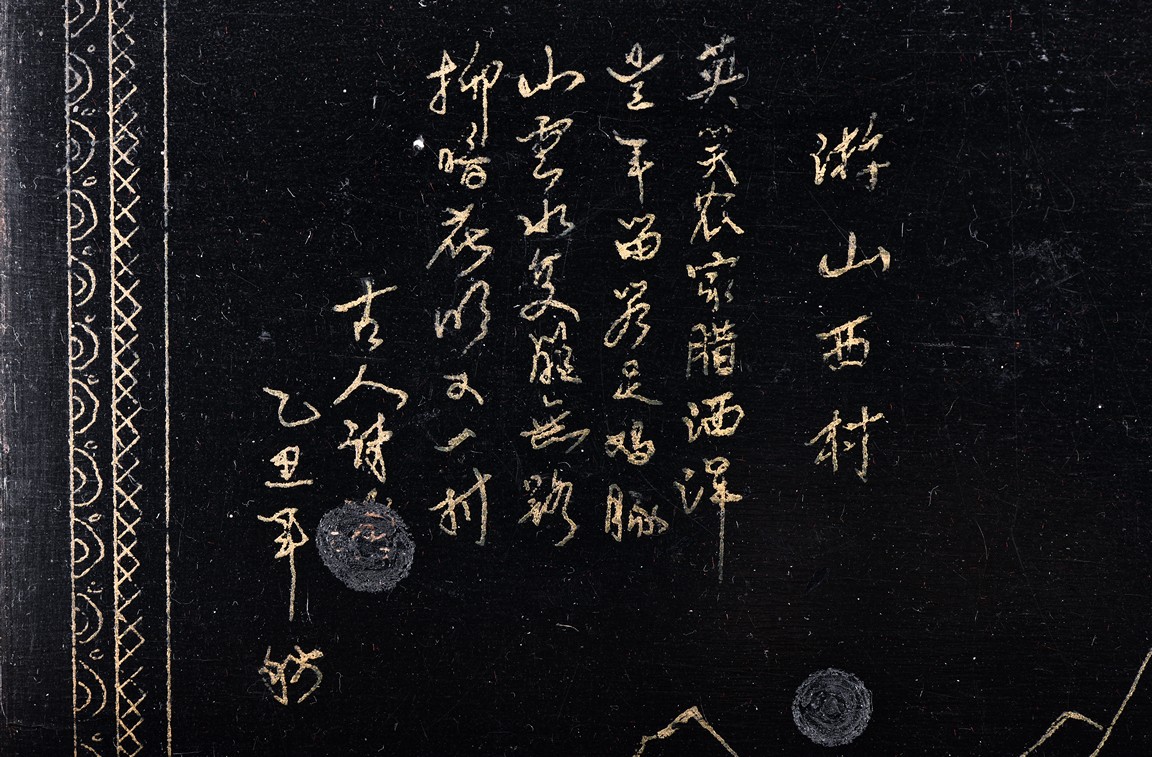 游山西村
莫笑农家腊酒浑
豊年留客足鸡豚
山重水复疑無路
柳暗花明又一村
古人诗
乙丑年秋